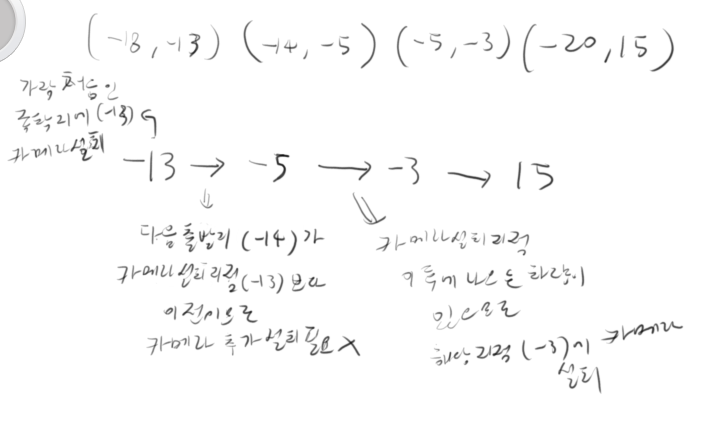 (-18, -13) (-14, -5) (-5, -3) (-20, 15)
가락 처음인
종착지에 (-13)
카메라 설치
-13 → -5 → -3 → 15
⇓
다음 출발지 (-14)가
카메라 설치지점(-13) 보다
이전이므로
카메라 추가 설치 필요 X
카메라 설치지점
이후에 나오는 차량이
있으므로
해당 지점 (-3)에 카메라
설치